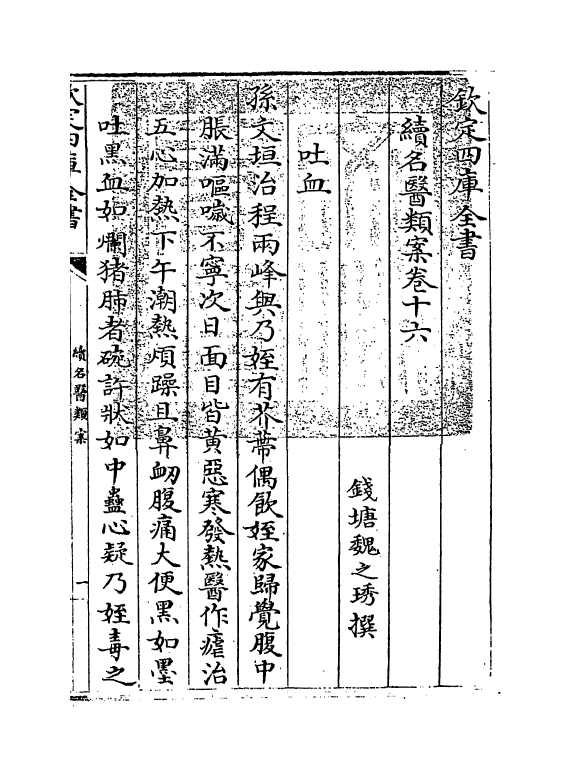 欽定四庫全書
續名醫類案卷十六
錢塘魏之琇撰
吐血
孫文垣治程兩峰與乃姪有芥蔕偶飲姪家歸覺腹中
脹滿嘔噦不寧次日面目皆黃惡寒發熱醫作瘧治
五心加熱下午潮熱煩躁且鼻衂腹痛大便黑如墨
吐黑血如爛猪肺者碗許狀如中蠱心疑乃姪毒之
欽定四庫全書
續名醫類案
一